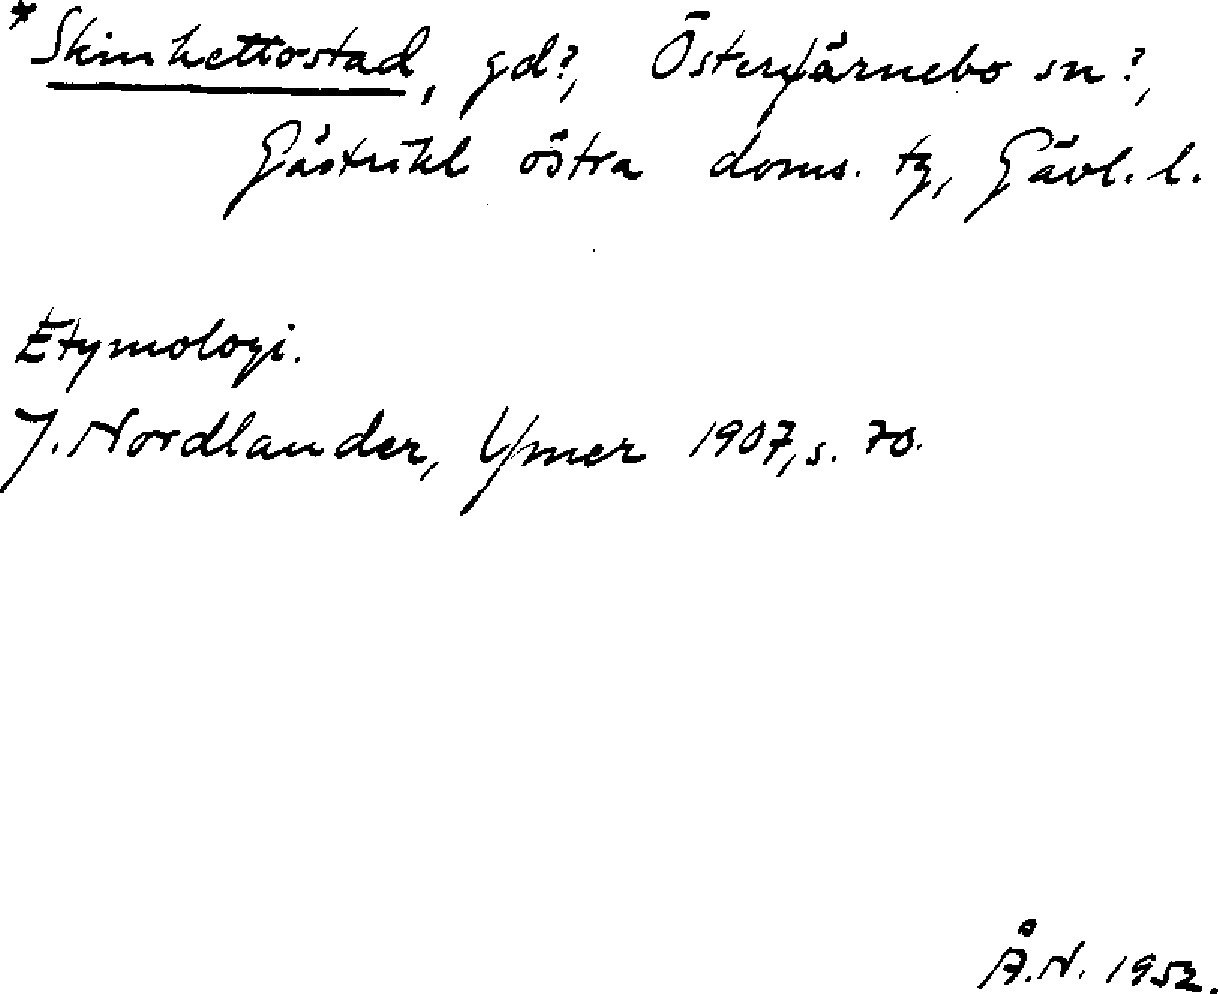 *Skinhettostad, gd?, Österfärnebo sn?,
Gästrikl östra doms. tg, Gävl. l.
Etymologi.
J. Nordlander, Ymer 1907, s. 70.
Å.N. 1952.